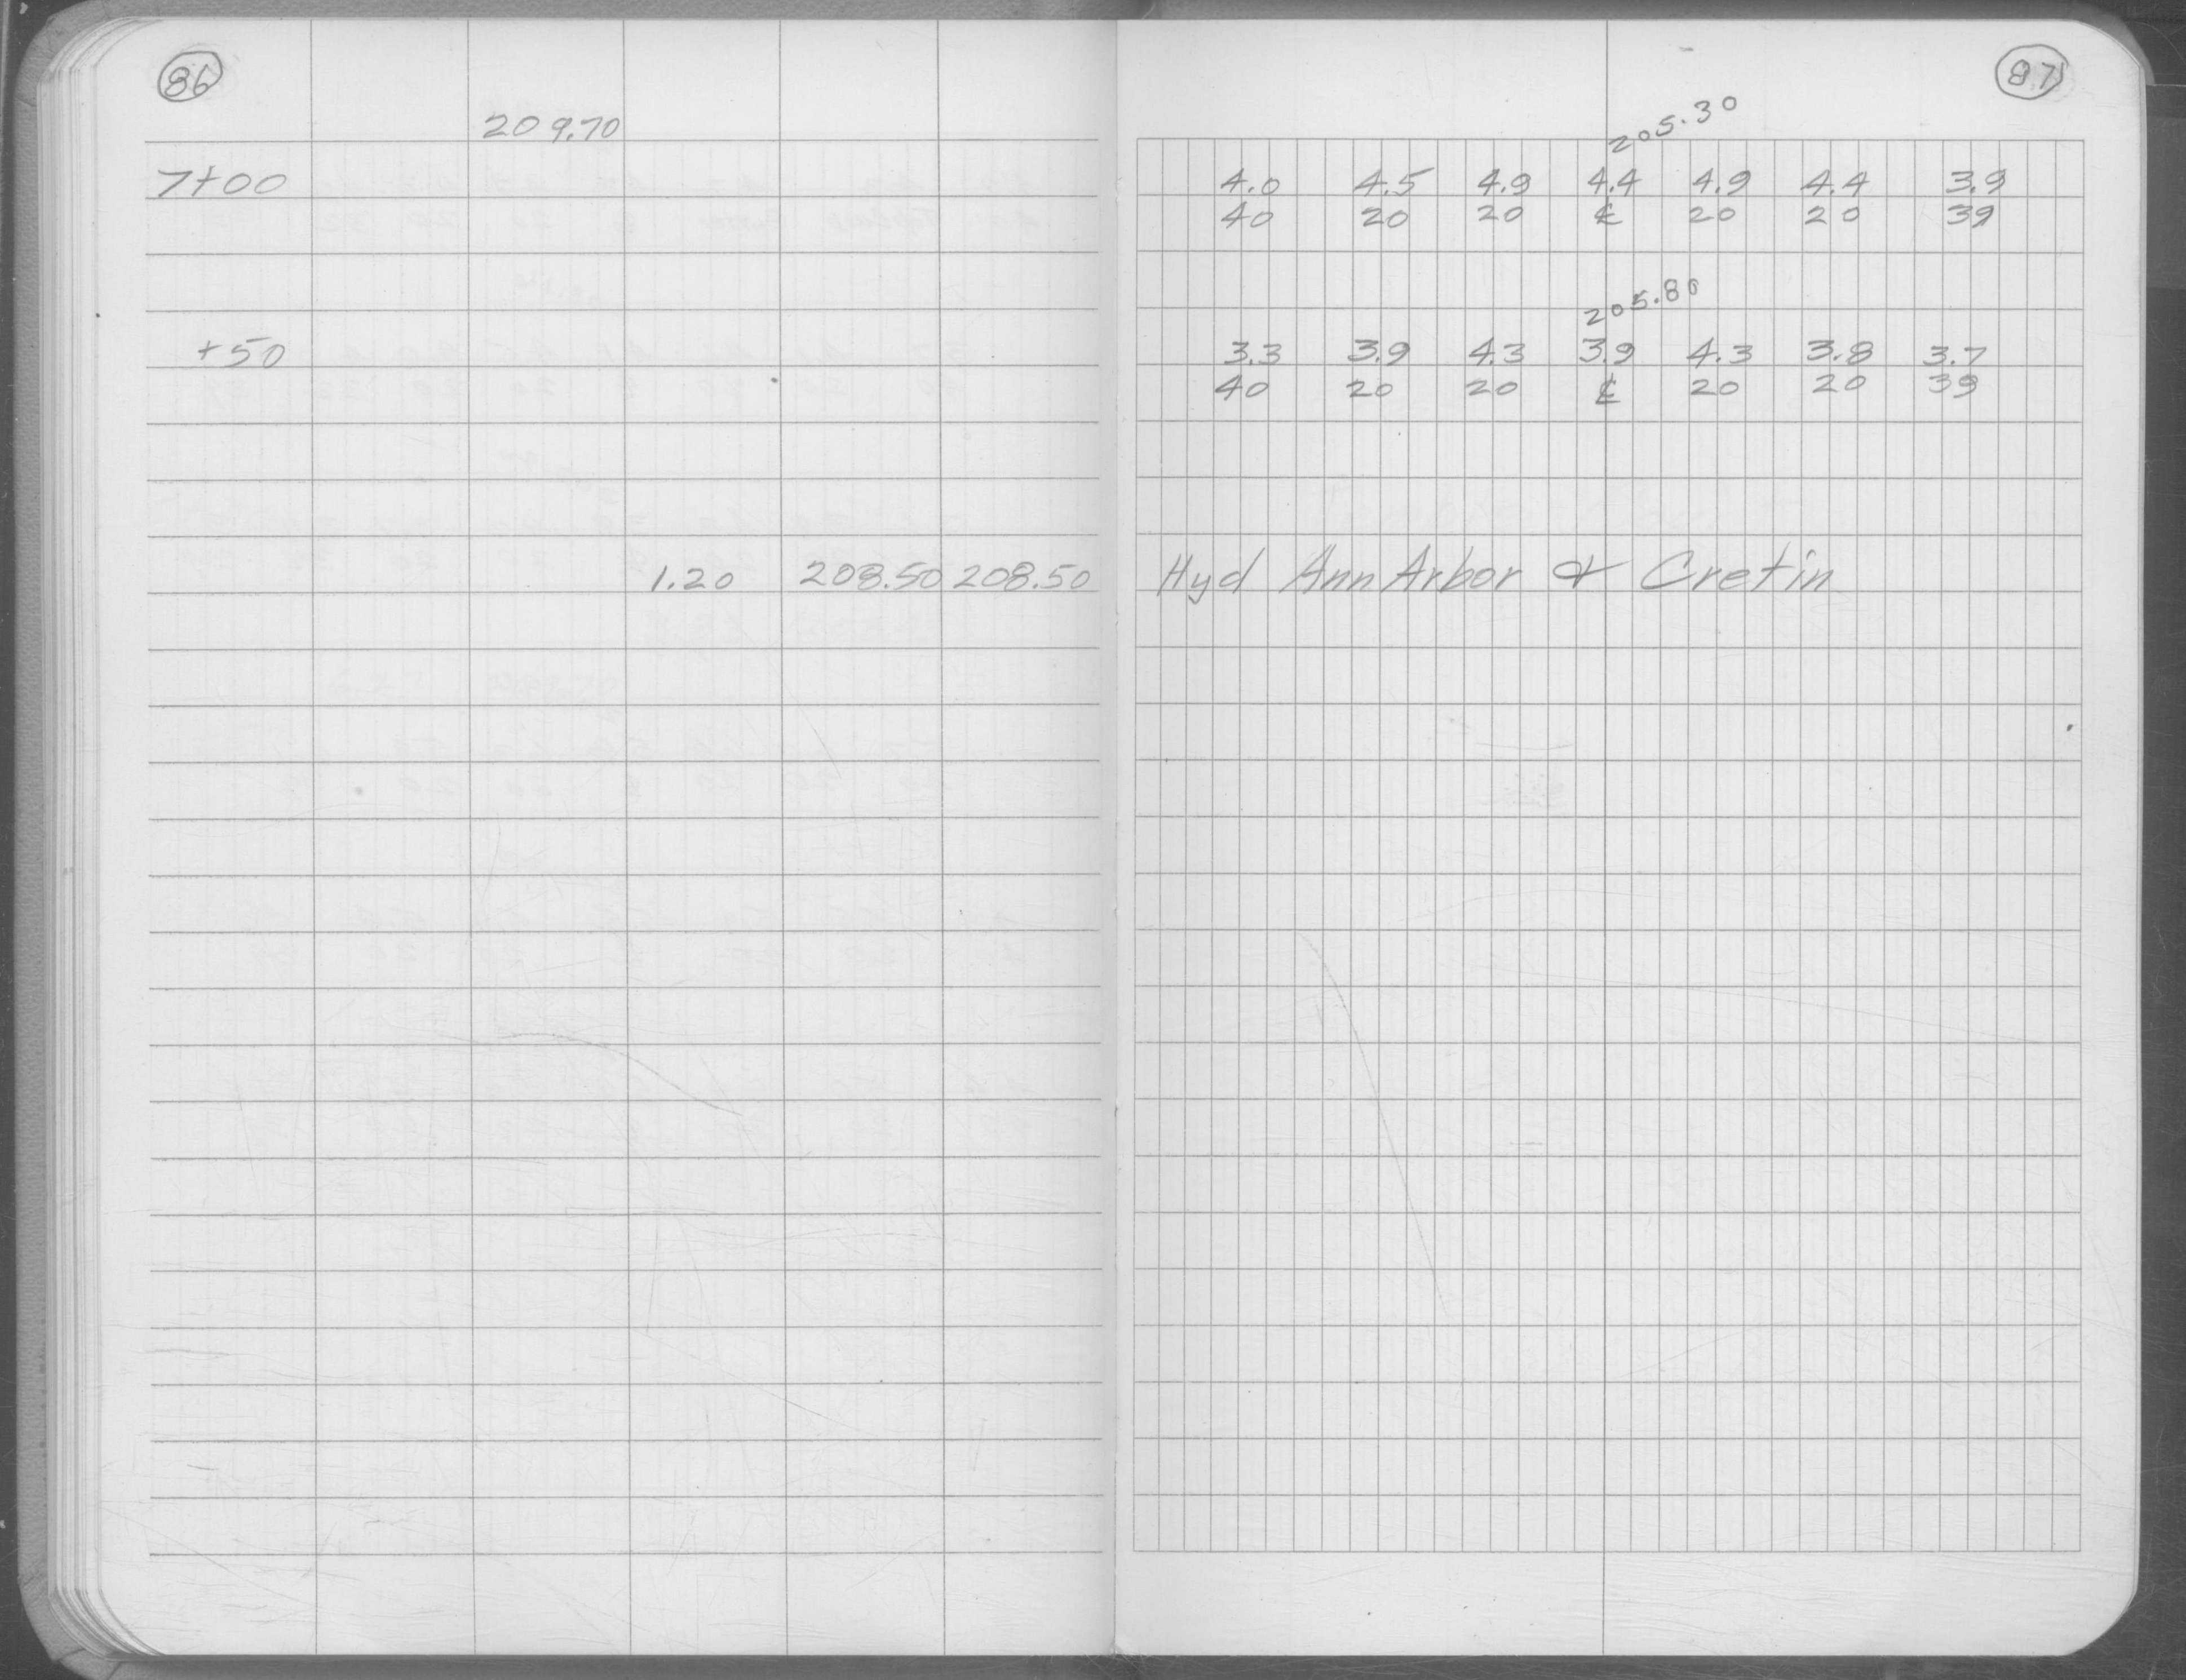 86
209.70
7+00
+50
1.20 208.50 208.50
87
205.30
4.0 4.5 4.9 4.4 4.9 4.4 3.9
40 20 20 ℄ 20 20 39
205.80
3.3 3.9 4.3 3.9 4.3 3.8 3.7
40 20 20 ℄ 20 20 39
Hyd Ann Arbor & Cretin